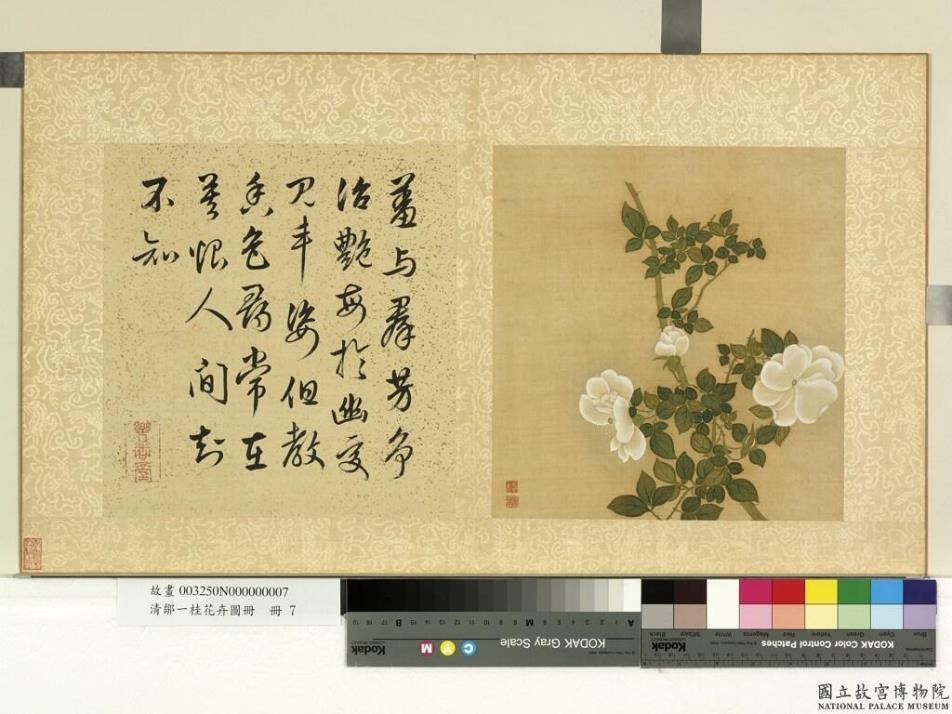 羞与羣芳争
冶艷每於幽處
见丰姿但教
香色尋常在
莫恨人間知
不知
故畫 003250N000000007
清鄒一桂花卉圖冊 冊 7
KODAK Gray Scale
Kodak
C Y M
A M B
KODAK Color Control Patches
Blue Cyan Green Yellow Red Magenta White 3/Color Black
Kodak
國立故宮博物院
NATIONAL PALACE MUSEUM